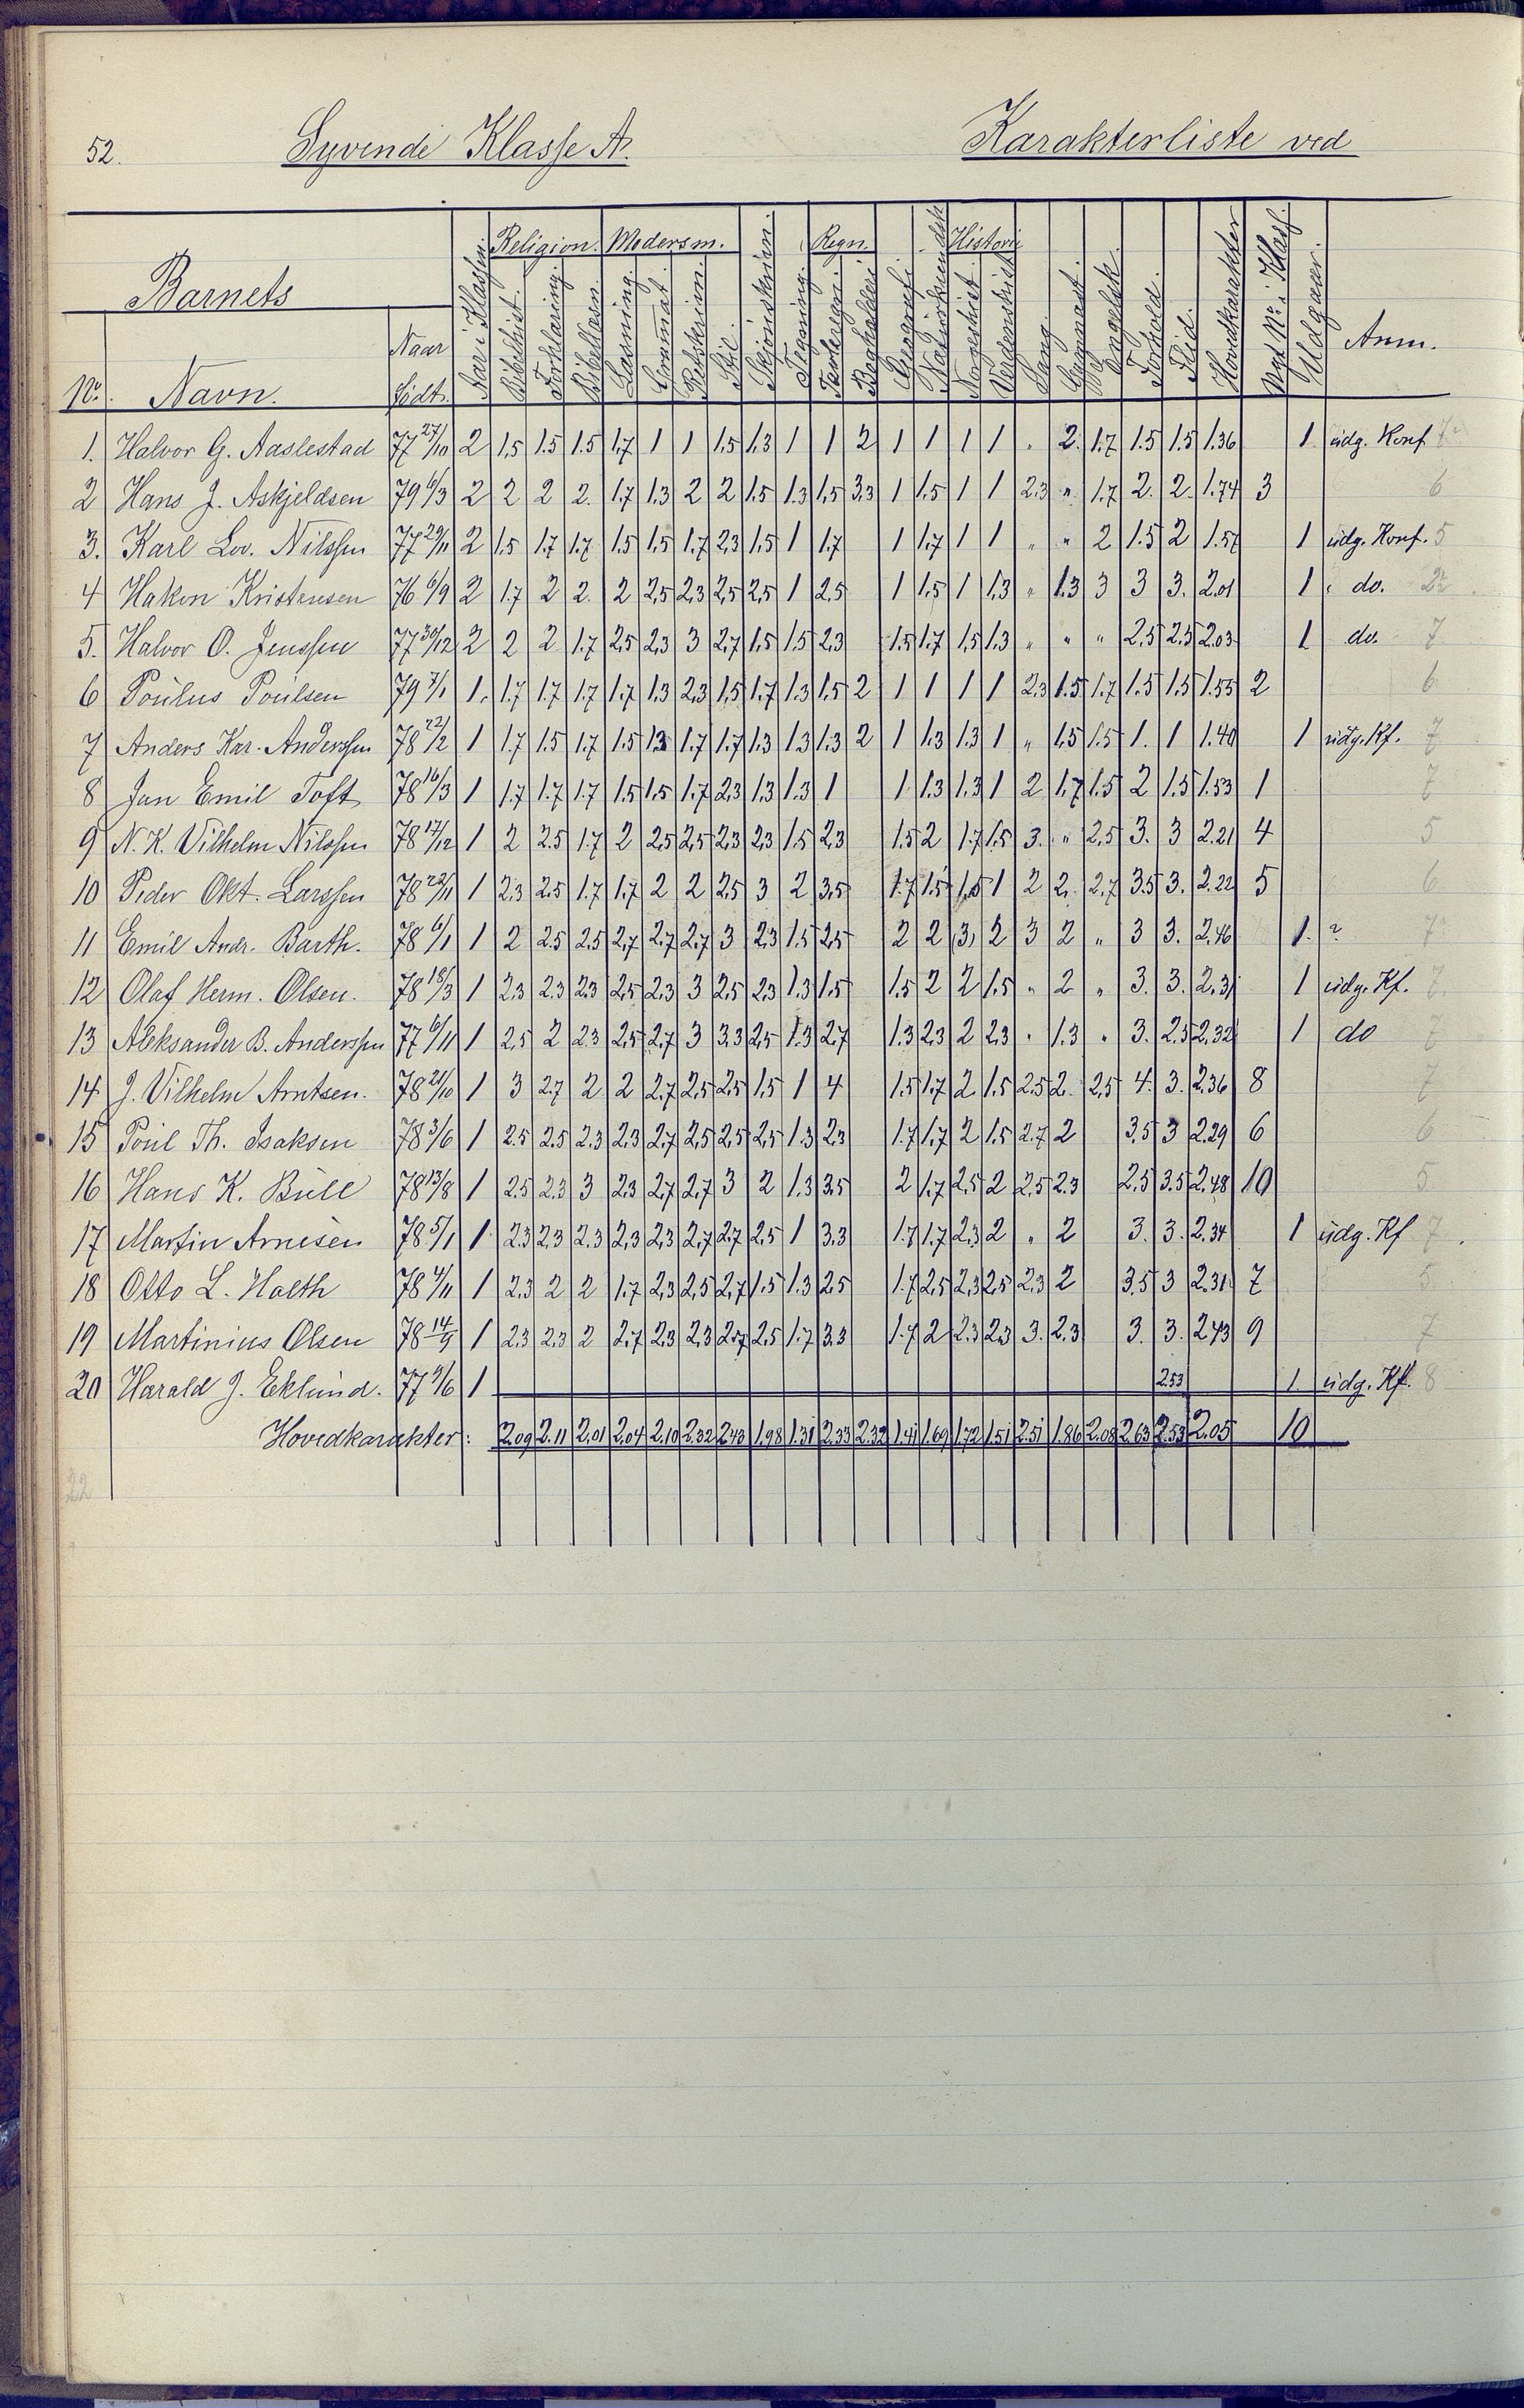 52. Syvende Klasse A. Karakterliste ved
Religion. Modersm. Regn. Historie
Barnets
No. Navn. Naar födt. Aar i Klassen. Bibelhist. Forklaring. Bibellæsn. Læsning. Gramat. Retskrivn. Stil. Skjönskrivn. Tegning. Tavleregn. Boghold. Geografi. Norgeshist. Verdenshist. Sang. Gymnast. Engelsk. Forhold. Flid. Hovedkarakter Nyt No i Klas. Udgaaer. Anm.
1. Halvor G. Aaslestad 77 27/10 2 1,5 1.5 1.5 1,7 1 1 1,5 1,3 1 1 2 1 1 1 1 „ 2. 1.7 1.5 1.5 1.36 1 udg. Konf 7
2 Hans J. Askjeldsen 79 6/3 2 2 2 2. 1.7 1.3 2 2 1.5 1.3 1,5 3,3 1 1,5 1 1 2,3 „ 1.7 2. 2. 1.74 3 6
3. Karl Lov. Nilssen 77 29/11 2 1.5 1.7 1.7 1.5 1.5 1.7 2,3 1,5 1 1.7 1 1.7 1 1 „ „ 2 1.5 2 1.57 1 udg. Konf. 5
4 Hakon Kristensen 76 6/9 2 1.7 2 2. 2 2,5 2,3 2,5 2,5 1 2,5 1 1,5 1 1,3 „ 1.3 3 3 3. 2.01 1 do.
5. Halvor O. Jenssen 77 30/12 2 2 2 1.7 2,5 2,3 3 2,7 1,5 1.5 2,3 1.5 1.7 1,5 1.3 „ „ „ 2.5 2.5 2.03 1 do. 7
6 Poulus Poulsen 79 7/1 1. 1.7 1.7 1.7 1.7 1.3 2,3 1,5 1.7 1.3 1,5 2 1 1 1 1 2,3 1.5 1.7 1.5 1.5 1.55 2 6
7 Anders Kar. Anderssen 78 22/2 1 1.7 1.5 1.7 1.5 1.3 1.7 1.7 1.3 1.3 1.3 2 1 1.3 1.3 1 „ 1.5 1.5 1. 1 1.40 1 udg. Kf. 7
8 Jan Emil Toft 78 16/3 1 1.7 1.7 1.7 1.5 1.5 1.7 2,3 1.3 1.3 1 1 1.3 1.3 1 2 1.7 1.5 2 1.5 1.53 1 7
9 N. K. Vilhelm Nilssen 78 17/12 1 2 2.5 1.7 2 2,5 2,5 2,3 2,3 1.5 2,3 1.5 2 1.7 1.5 3. „ 2,5 3. 3 2.21 4 5
10 Peder Okt. Larssen 78 22/11 1 2,3 2.5 1.7 1.7 2 2 2,5 3 2 3,5 1.7 1.5 1,5 1 2 2. 2.7 3.5 3. 2.22 5 6
11 Emil Andr. Barth. 78 6/1 1 2 2.5 2.5 2,7 2,7 2,7 3 2,3 1.5 2,5 2 2 3, 2 3 2 „ 3 3. 2,46 1. ? 7
12 Olaf Herm. Olsen. 78 18/3 1 2,3 2.3 2.3 2,5 2,3 3 2,5 2,3 1.3 1,5 1.5 2 2 1.5 „ 2 „ 3. 3. 2,31 1 udg. Kf. 7
13 Aleksander B. Anderssen 77 6/11 1 2,5 2 2.3 2,5 2,7 3 3.3 2,5 1.3 2,7 1.3 2,3 2 2,3 „ 1.3 „ 3. 2.5 2,32 1 do 7
14 J. Vilhelm Arntsen. 78 21/10 1 3 2.7 2 2 2,7 2,5 2,5 1.5 1 4 1.5 1.7 2 1.5 2,5 2. 2,5 4. 3. 2,36 8 7
15 Poul Th. Isaksen 78 3/6 1 2.5 2.5 2.3 2,3 2,7 2,5 2,5 2,5 1.3 2,3 1.7 1.7 2 1.5 2.7 2 3,5 3 2.29 6 6
16 Hans K. Bull 78 13/8 1 2.5 2.3 3 2,3 2,7 2,7 3 2 1.3 3,5 2 1.7 2,5 2 2,5 2.3 2,5 3.5 2,48 10 5
17 Martin Arnesen 78 5/1 1 2.3 2,3 2.3 2,3 2,3 2,7 2,7 2,5 1 3,3 1.7 1.7 2,3 2 „ 2 3. 3. 2.34 1 udg. Kf 7
18 Otto L. Holth 78 4/11 1 2,3 2 2 1.7 2,3 2,5 2,7 1.5 1.3 2,5 1.7 2,5 2,3 2,5 2,3 2 3,5 3 2.31 7 5
19 Martinius Olsen 78 14/9 1 2,3 2,3 2 2,7 2,3 2,3 2,7 2,5 1.7 3,3 1.7 2 2,3 2,3 3. 2.3 3. 3. 2,43 9 7
20 Harald J. Eklund. 77 9/6 1 2.53 1. udg. Kf. 8
Hovedkarakter: 2.09 2.11 2,01 2,04 2,10 2,32 2,43 1,98 1.31 2.33 2.32 1.41 1.69 1.72 1.51 2.51 1.86 2.08 2.63 2.53 2.05 10
22